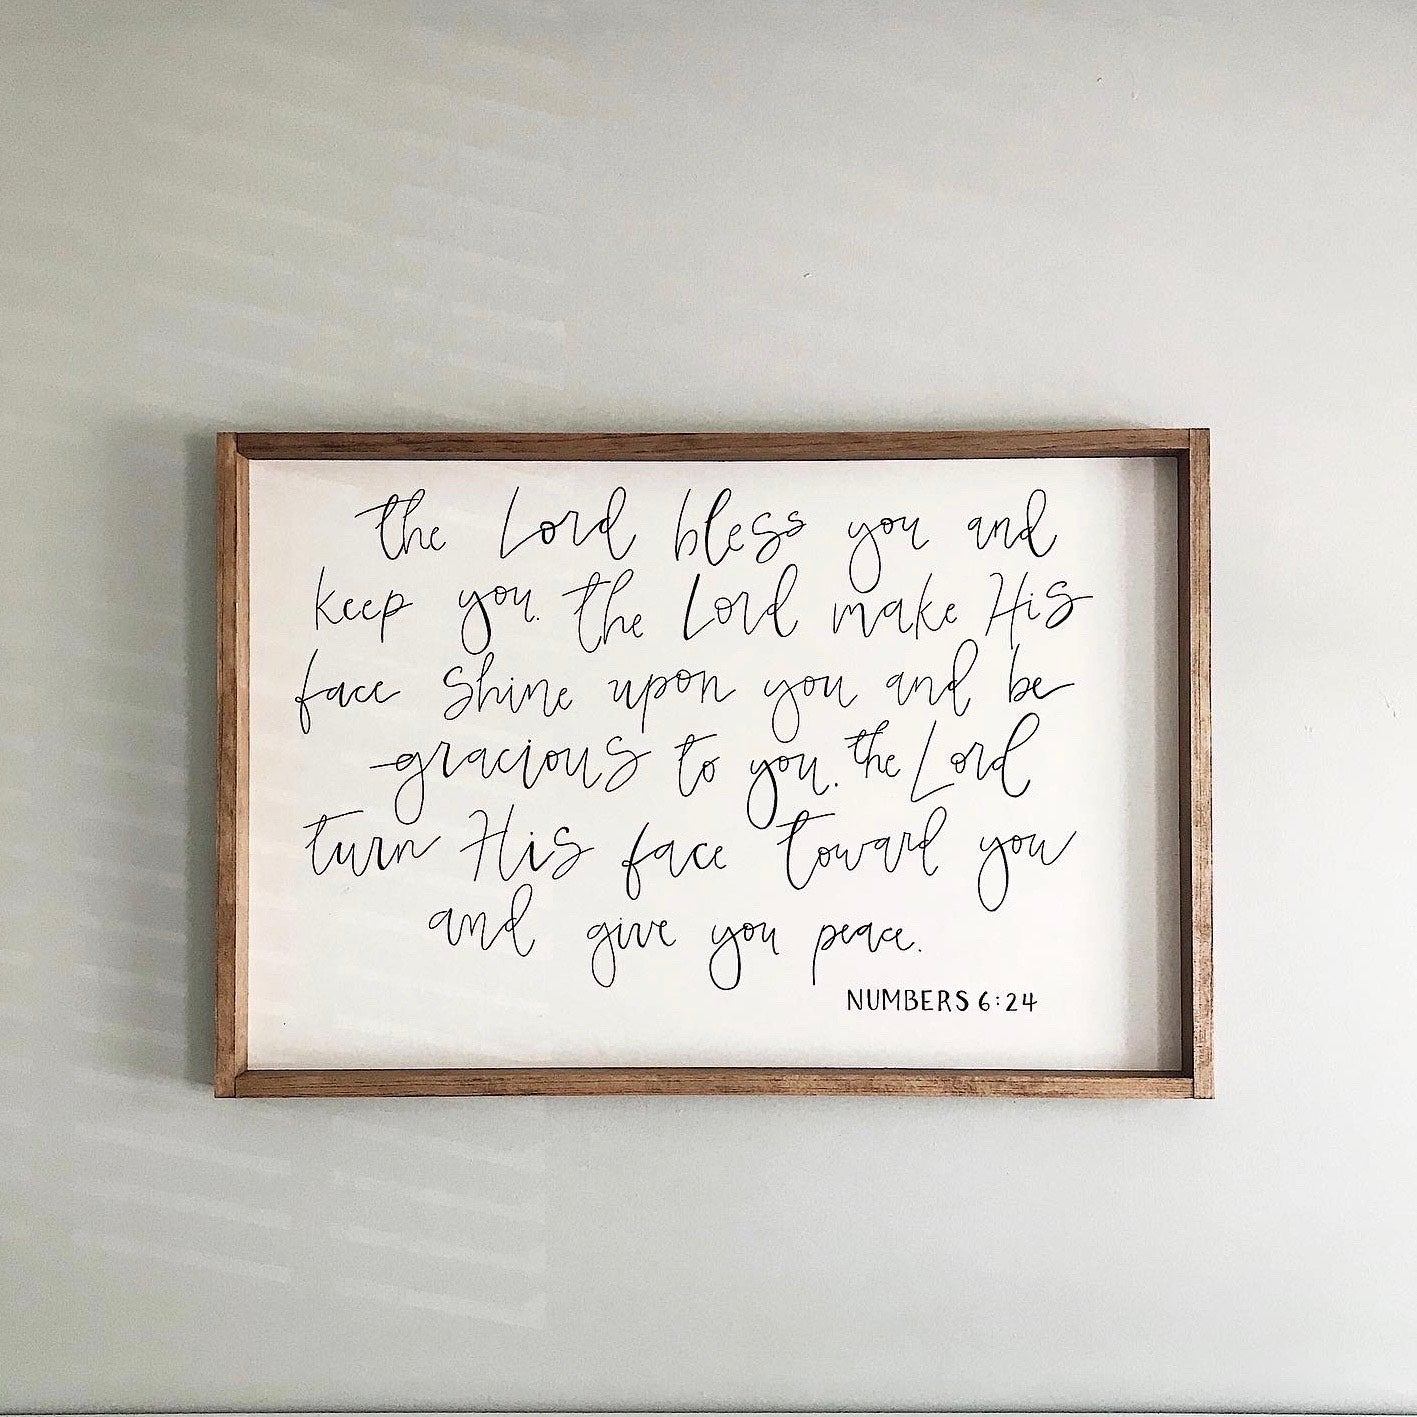 the Lord bless you and
keep you. the Lord make His
face shine upon you and be
gracious to you. the Lord
turn His face toward you
and give you peace.
NUMBERS 6:24